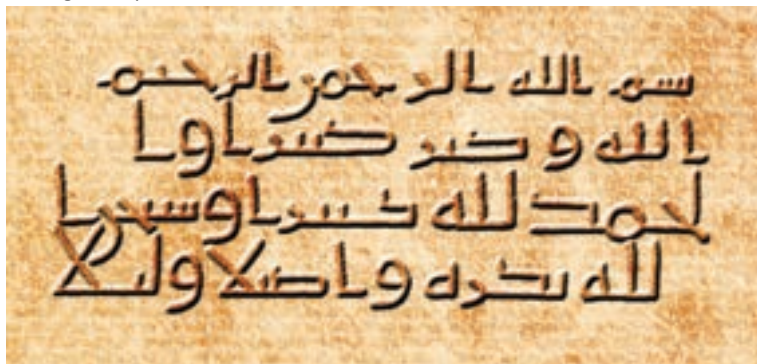 بسم الله الرحمن الرحيم
الله وكبر كبيرا وا
لحمد لله كثيرا وسبحن ا
لله بكره واصيلا وليلا